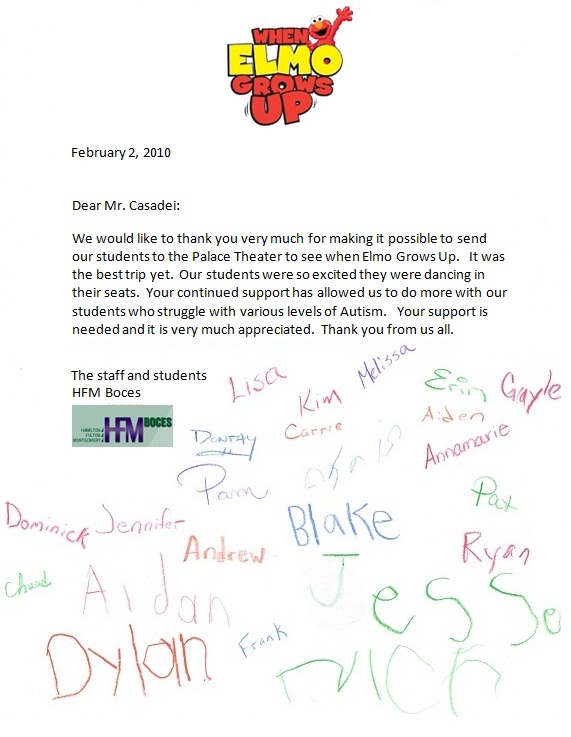 WHEN
ELMO
GROWS
UP
February 2, 2010
Dear Mr. Casadei:
We would like to thank you very much for making it possible to send
our students to the Palace Theater to see when Elmo Grows Up. It was
the best trip yet. Our students were so excited they were dancing in
their seats. Your continued support has allowed us to do more with our
students who struggle with various levels of Autism. Your support is
needed and it is very much appreciated. Thank you from us all.
The staff and students
HFM Boces
HAMILTON
FULTON
MONTGOMERY
HFM BOCES
Lisa
Kim
Melissa
Erin
Gayle
Dontay
Carrie
Aiden
Annamarie
Pam
Chris
Pax
Dominick
Jennifer
Blake
Andrew
Ryan
Chad
Aidan
Jesse
Dylan
Frank
Nich